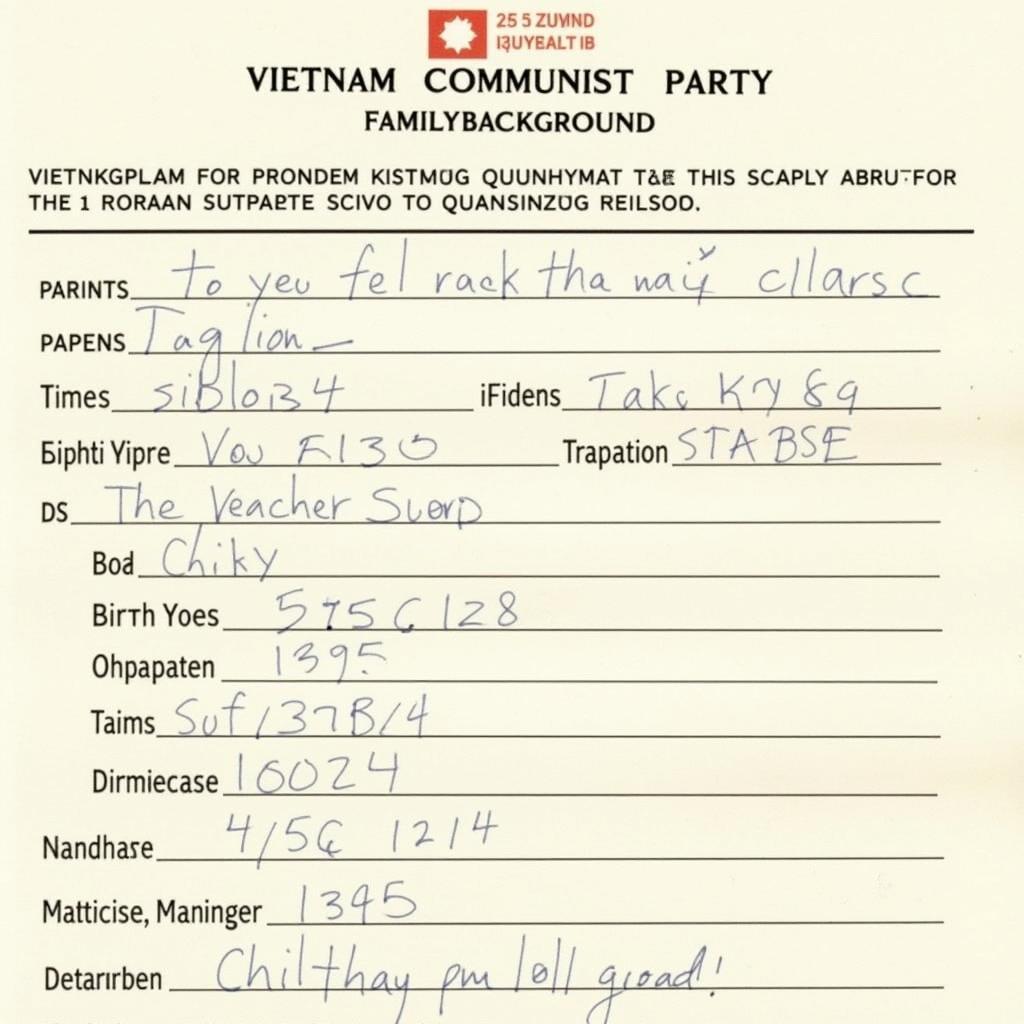 25 5 ZUWND
IQUYEALT IB
VIETNAM COMMUNIST PARTY
FAMILYBACKGROUND
VIETNKGPLAM FOR PRONDEM KISTMUG QUUNHYMAT TAE THIS SCAPLY ABRUT-FOR
THE 1 RORAAN SUTPAETE SCIVO TO QUANSINZUG REILSOD.
PARINTS to yeu fel rack tha cllarsc
PAPENS Tag lion
Times siBlo34 iFidens Take Ky 89
Yipre Vou F130 Trapation STABSE
DS The Veacher Suerp
Bod Chiky
Birth Yoes 575C 128
Ohpapaten 1395
Taims Suf/37B/4
Dirmiecase 10024
Nandhare 4/5C 1214
Matticise, Maninger 1345
Detarirben Chilthay pm loll groad!